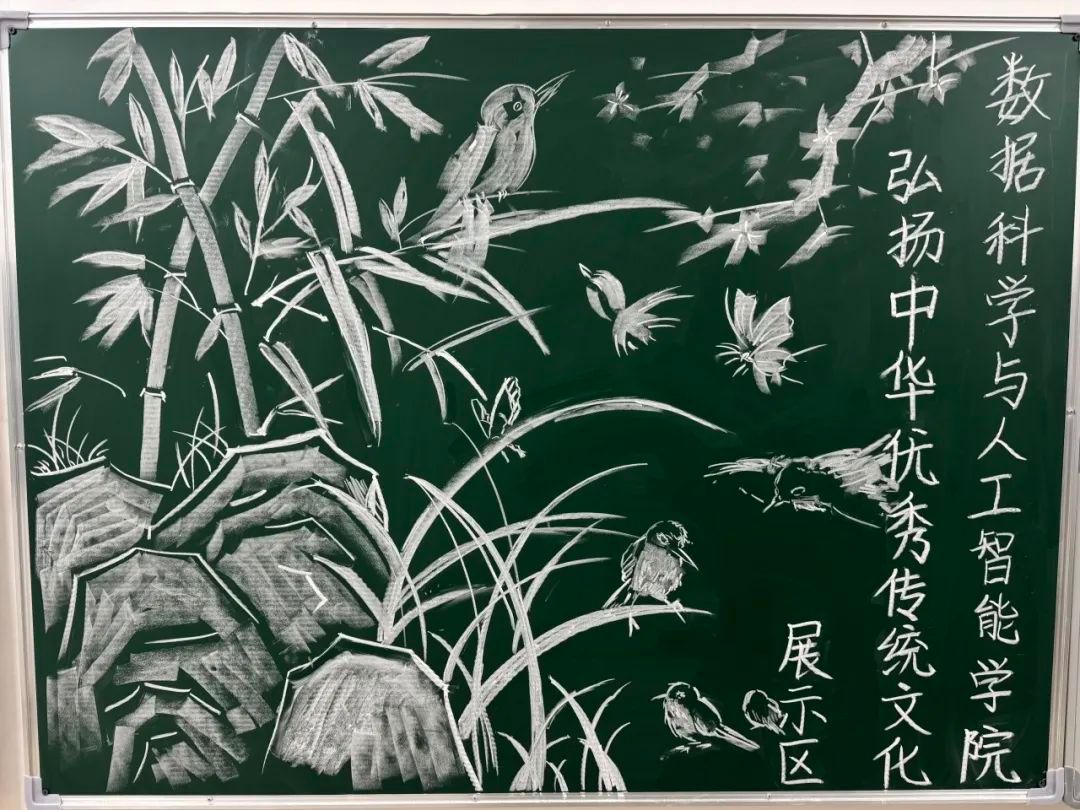 数据科学与人工智能学院
弘扬中华优秀传统文化
展示区